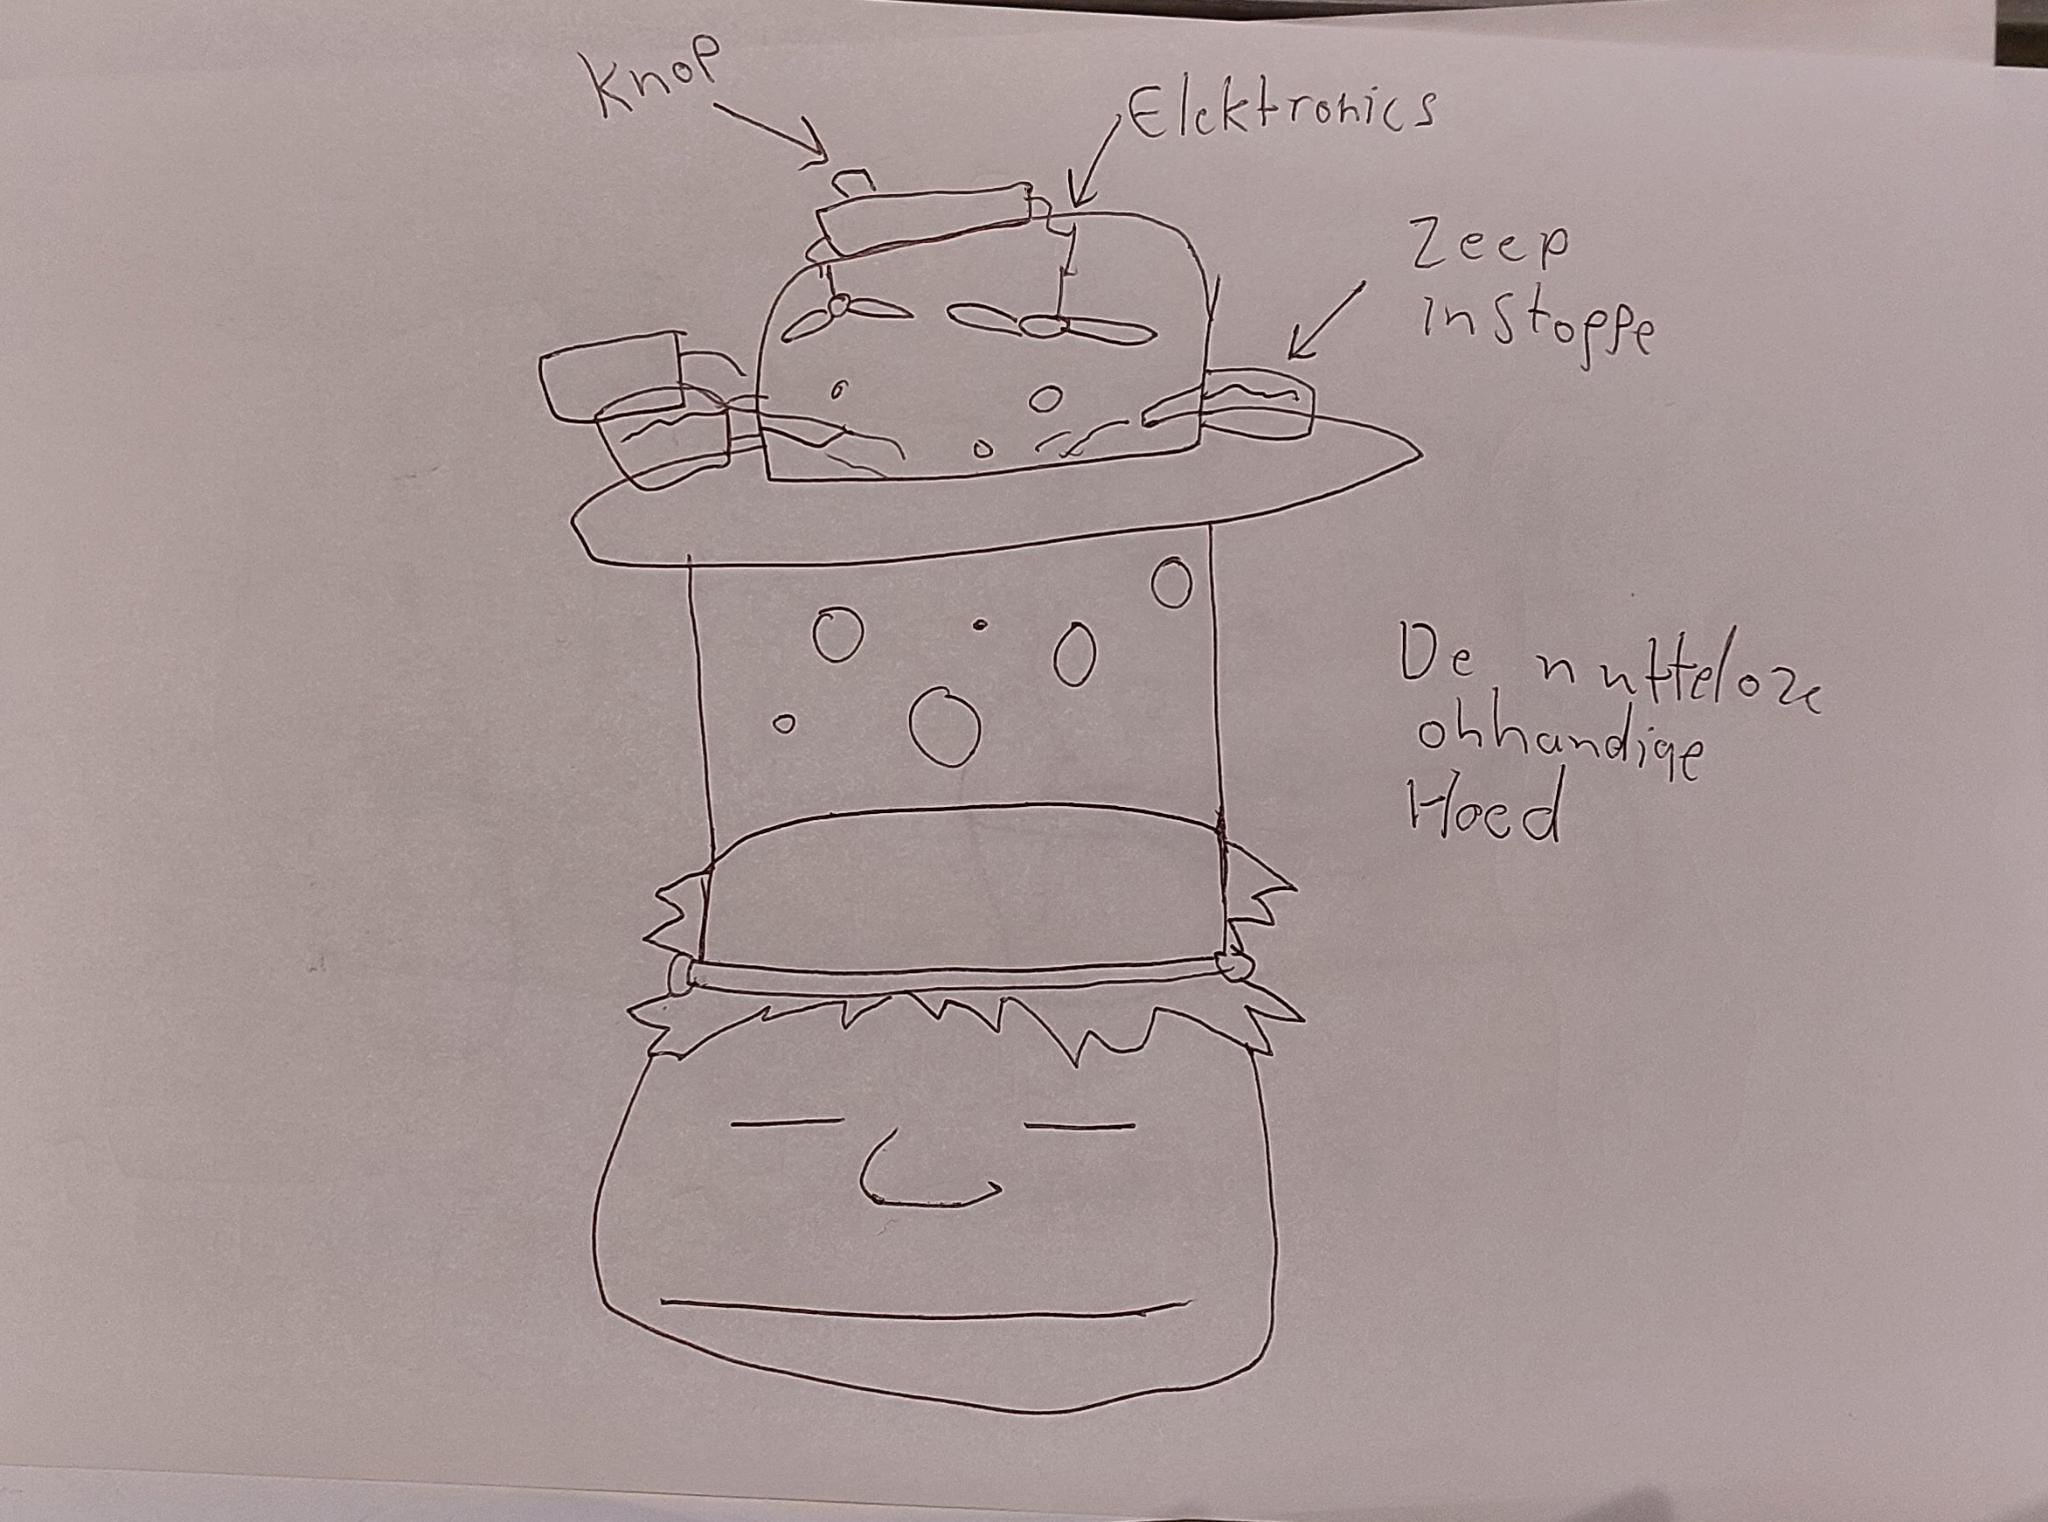 Knop
Elektronics
Zeep
instoppe
De nutteloze
onhandige
Hoed